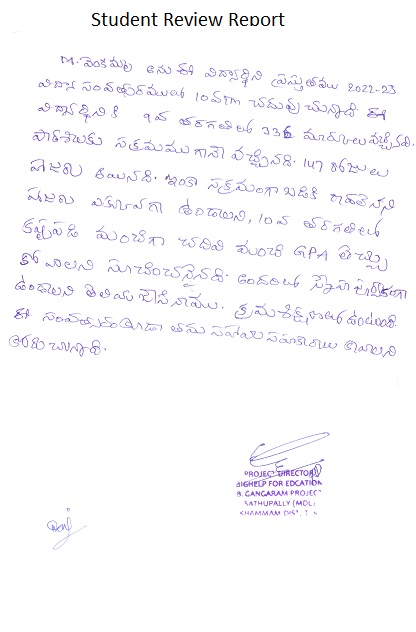 Student Review Report
M. వెంకమ్మ అను ఈ విద్యార్థిని ప్రస్తుతము 2022-23
విద్యా సంవత్సరములో 10వ తరగతి చదువుచున్నది. ఈ
విద్యార్థినికి 9వ తరగతిలో 336 మార్కులు వచ్చినవి.
పాఠశాలకు సక్రమముగానే వచ్చినది. 147 రోజులు
హాజరు అయినది. ఇంకా సక్రమంగా బడికి
హాజరు ఎక్కువగా ఉండాలని, 10వ తరగతిలో
కష్టపడి మంచిగా చదివి మంచి GPA తెచ్చు
కోవాలని సూచించనైనది. అందరితో స్నేహ పూర్వకంగా
ఉండాలని తెలియ చేసినాము. క్రమశిక్షణతో ఉంటుంది.
ఈ సంవత్సరం కూడా తమ సహాయ సహకారాలు కావాలని
కోరుచున్నాది.
PROJECT DIRECTOR
BIGHELP FOR EDCATION
B. GANGARAM PROJECT
SATHUPALLY (MDL)
KHAMMAM DIST, T.S